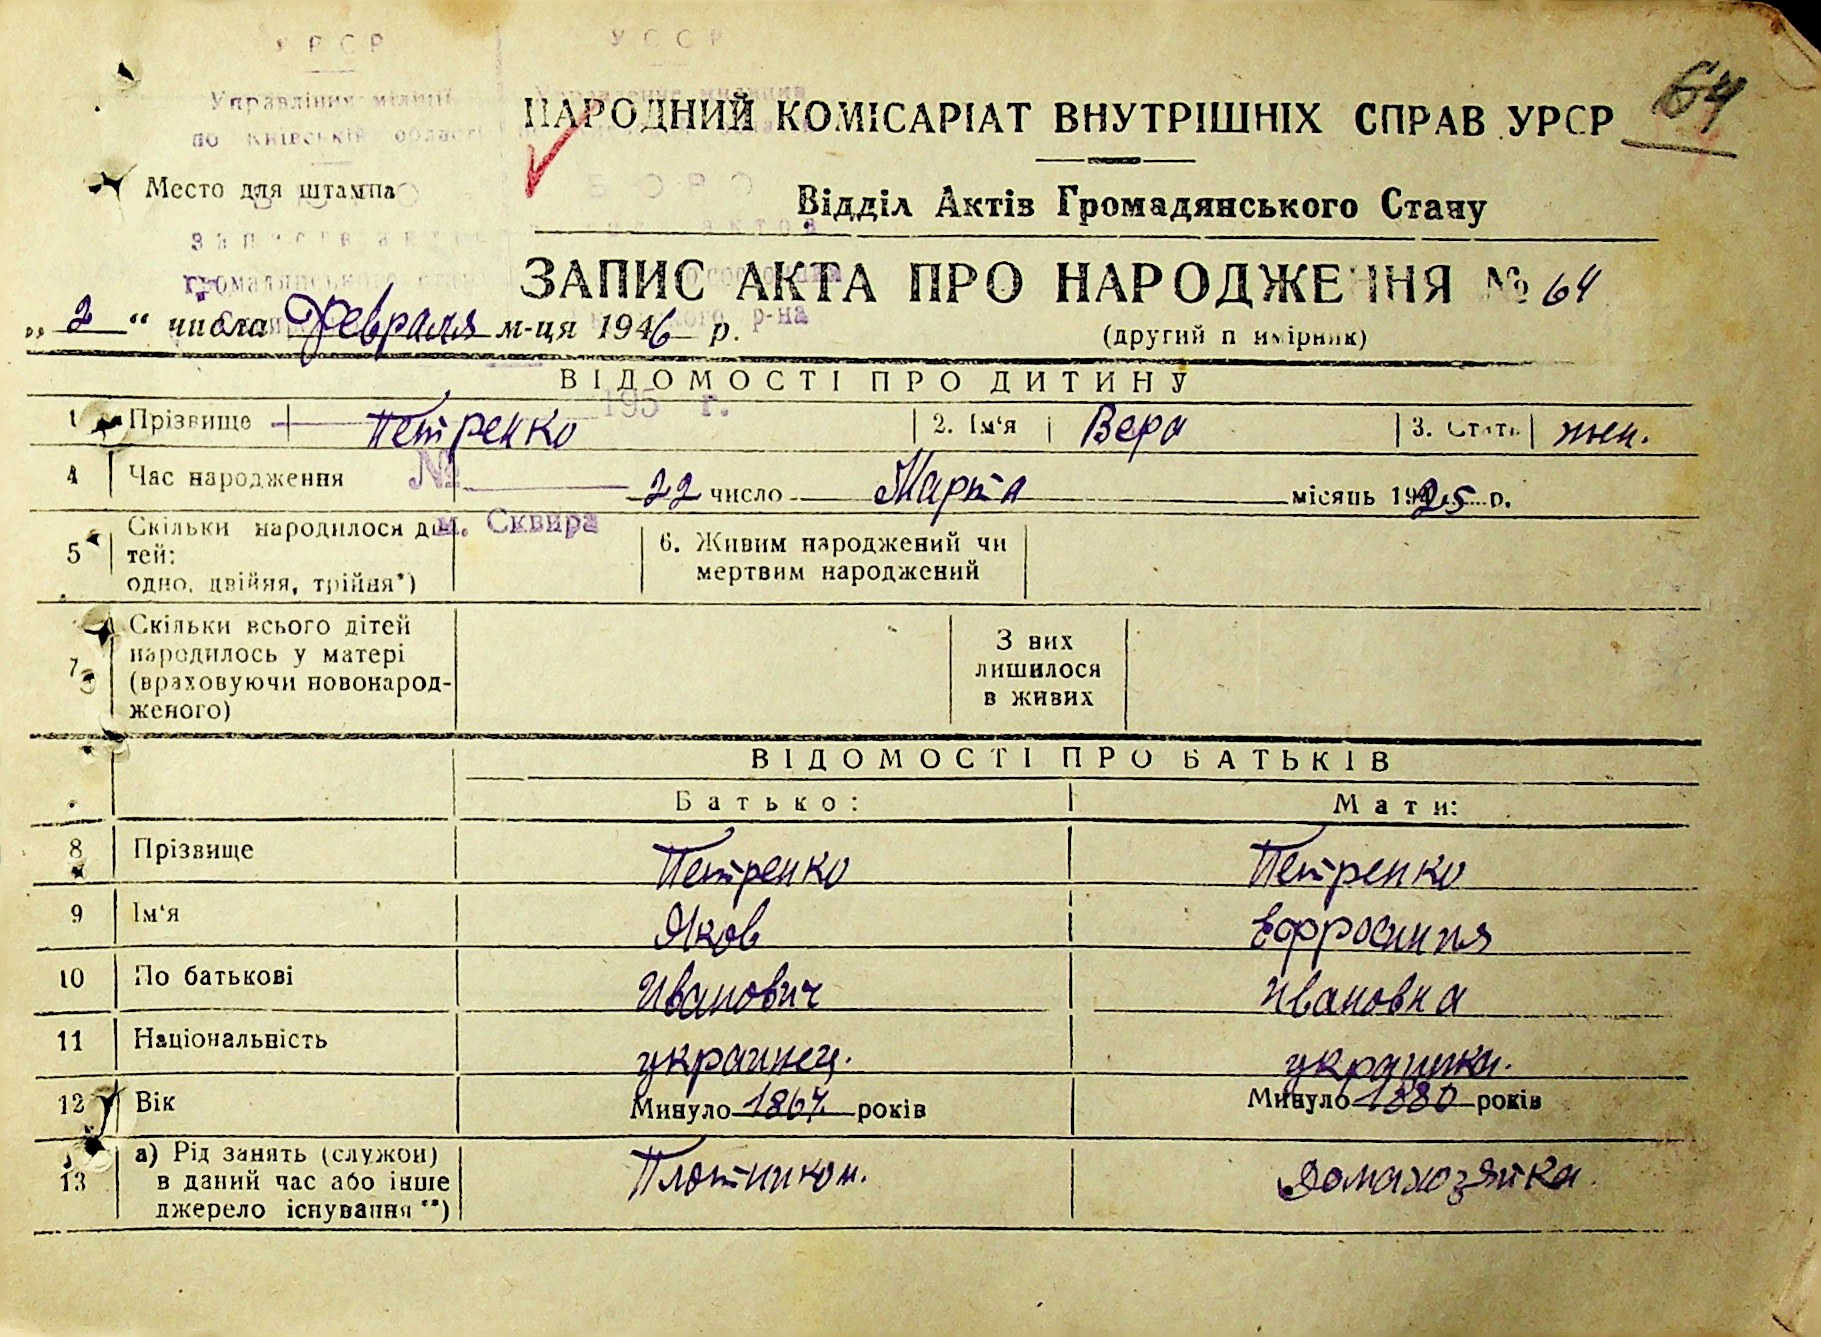 УРСР УССР
Управління міліції Управление милиции
по Київській області
64
НАРОДНИЙ КОМІСАРІАТ ВНУТРІШНІХ СПРАВ УРСР
Место для штампа
БЮРО
Відділ Актів Громадянського Стану
ЗАПИС АКТА ПРО НАРОДЖЕННЯ № 64
„ 2 “ числа Февраля м-ця 1946 р.
р-на
(другий примірник)
ВІДОМОСТІ ПРО ДИТИНУ
195 г.
1 Прізвище Петренко 2. Ім'я Вера 3. Стать жен.
4 Час народження 22 число Марта місяць 1925 р.
№
м. Сквира
5 Скільки народилося ді-
тей:
одно, двійня, трійня*)
6. Живим народжений чи
мертвим народжений
7 Скільки всього дітей
народилось у матері
(враховуючи новонарод-
женого)
З них
лишилося
в живих
ВІДОМОСТІ ПРО БАТЬКІВ
Батько: Мати:
8 Прізвище Петренко Петренко
9 Ім'я Яков Ефросиния
10 По батькові Иванович Ивановна
11 Національність украинец. украинка.
12 Вік Минуло 1867 років Минуло 1880 років
13 а) Рід занять (служби)
в даний час або інше
джерело існування **)
Плотником. Домахозяйка